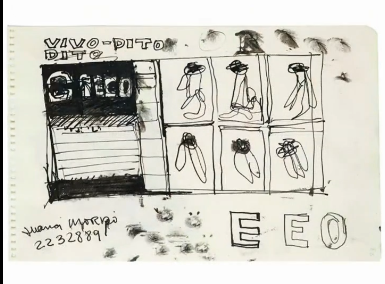 VIVO-DITO
DITO
GRECO
Juana Morró
2232889
E EO